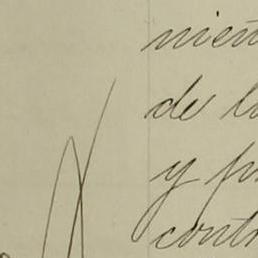 mien
de l
y p
contr